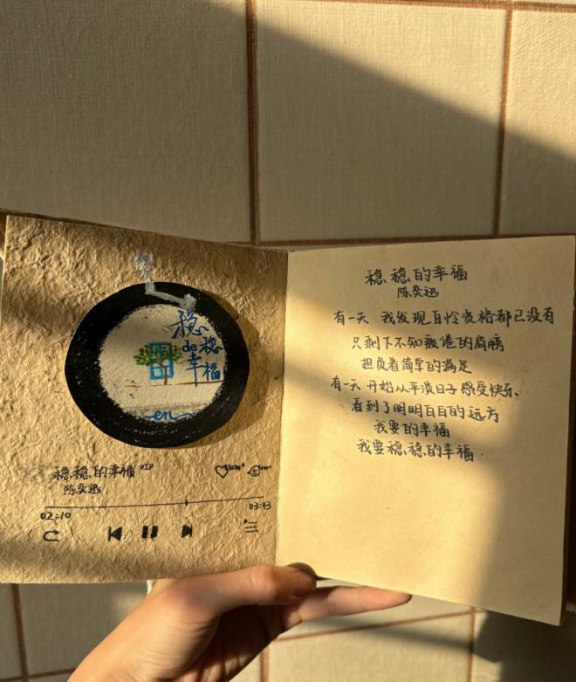 稳
de 稳
幸
福
en
稳稳的幸福 VIP
陈奕迅
02:10
03:43
稳稳的幸福
陈奕迅
有一天 我发现自怜资格都已没有
只剩下不知疲倦的肩膀
担负着简单的满足
有一天 开始从平淡日子感受快乐
看到了明明白白的远方
我要的幸福
我要稳稳的幸福